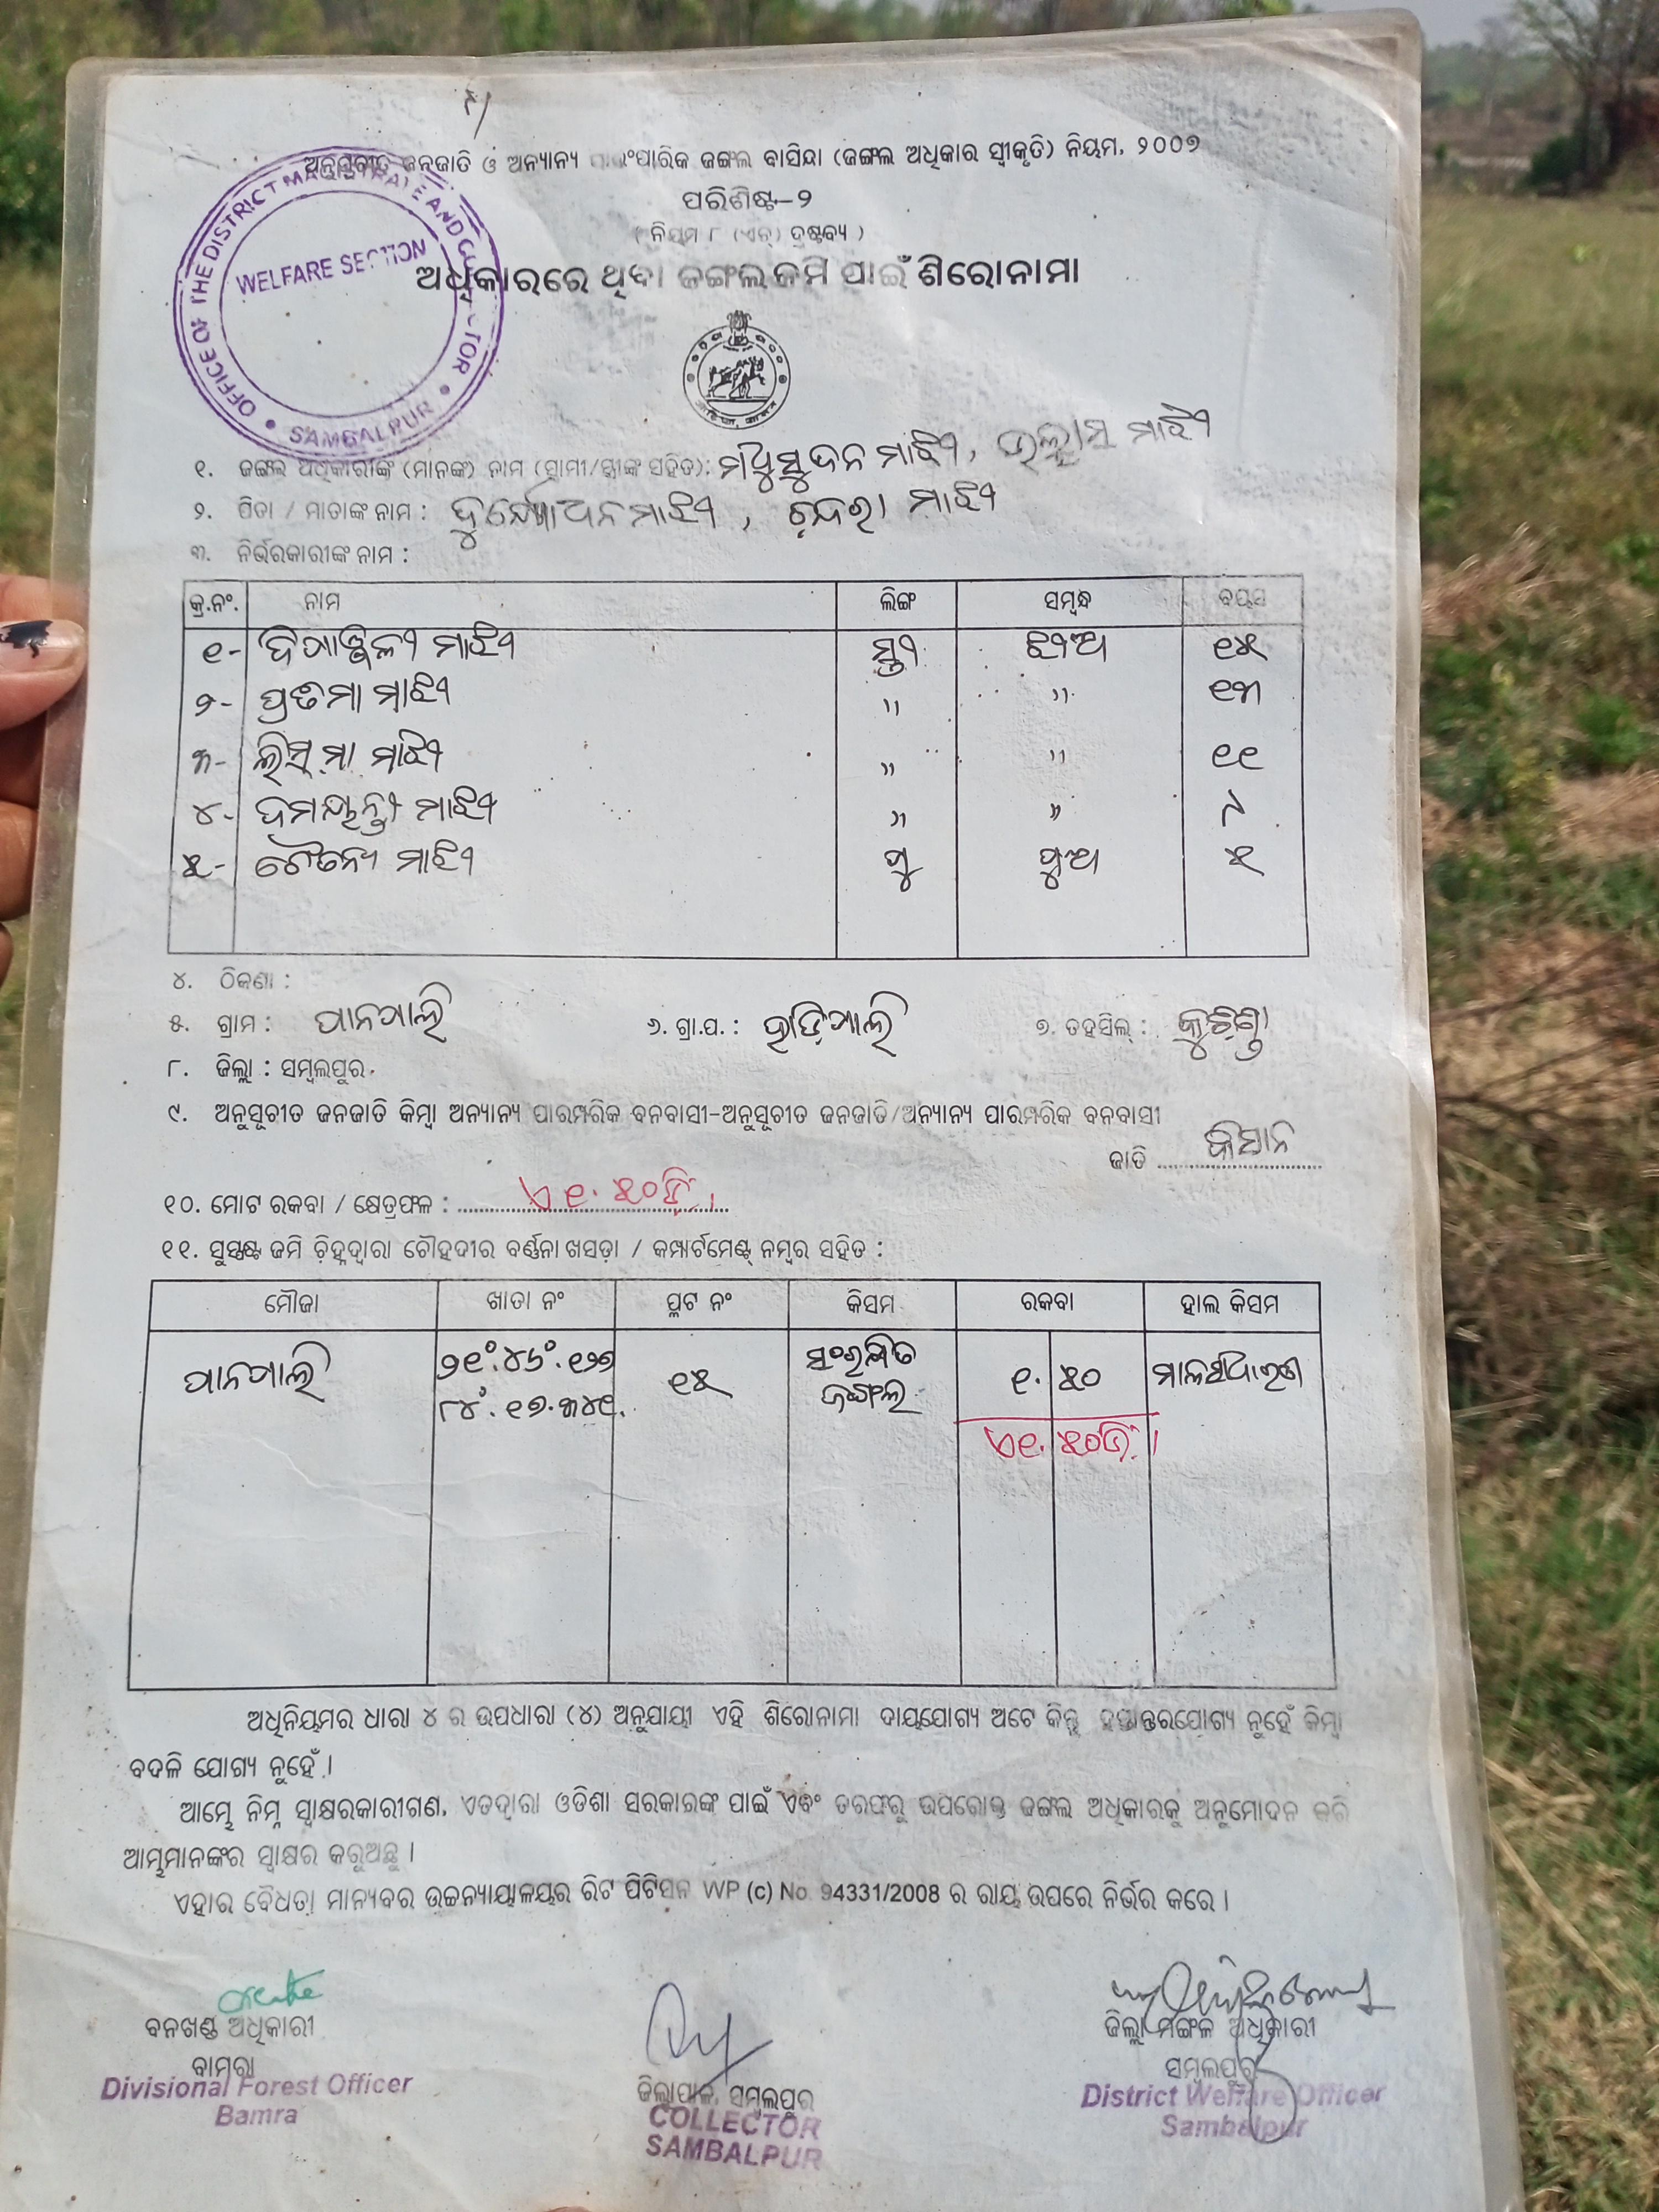 ଅନୁସୂଚୀତ ଜନଜାତି ଓ ଅନ୍ୟାନ୍ୟ ପାରଂପାରିକ ଜଙ୍ଗଲ ବାସିନ୍ଦା (ଜଙ୍ଗଲ ଅଧିକାର ସ୍ୱୀକୃତି) ନିୟମ, ୨୦୦୭
ପରିଶିଷ୍ଟ-୨
(ନିୟମ ୮ (ଏଚ୍) ଦ୍ରଷ୍ଟବ୍ୟ)
ଅଧିକାରରେ ଥିବା ଜଙ୍ଗଲ ଜମି ପାଇଁ ଶିରୋନାମା
OFFICE OF THE DISTRICT MAGISTRATE AND COLLECTOR
WELFARE SECTION
SAMBALPUR
୧. ଜଙ୍ଗଲ ଅଧିକାରୀଙ୍କ (ମାନଙ୍କ) ନାମ (ସ୍ୱାମୀ/ସ୍ତ୍ରୀଙ୍କ ସହିତ): ମଧୁସୁଦନ ମାଝି, ଉଲ୍ଲାସ ମାଝି
୨. ପିତା / ମାତାଙ୍କ ନାମ : ଦୁର୍ଯ୍ୟୋଧନ ମାଝି, ମାଝି
୩. ନିର୍ଭରକାରୀଙ୍କ ନାମ :
କ୍ର.ନଂ. ନାମ ଲିଙ୍ଗ ସମ୍ବନ୍ଧ ବୟସ
୧- ମାଝି ସ୍ତ୍ରୀ ଝିଅ ୧୫
୨- ପ୍ରତିମା ମାଝି " " ୧୩
୩- ମାଝି " " ୧୧
୪- ଦମୟନ୍ତୀ ମାଝି " " ୮
୫- ଚୈତନ୍ୟ ମାଝି ପୁ ପୁଅ ୫
୪. ଠିକଣା :
୫. ଗ୍ରାମ : ପାନପାଲି ୬. ଗ୍ରା.ପ. : ୭. ତହସିଲ୍ : କୁଚିଣ୍ଡା
୮. ଜିଲ୍ଲା : ସମ୍ବଲପୁର
୯. ଅନୁସୂଚୀତ ଜନଜାତି କିମ୍ବା ଅନ୍ୟାନ୍ୟ ପାରମ୍ପରିକ ବନବାସୀ-ଅନୁସୂଚୀତ ଜନଜାତି/ଅନ୍ୟାନ୍ୟ ପାରମ୍ପରିକ ବନବାସୀ
ଜାତି କିସାନ
୧୦. ମୋଟ ରକବା / କ୍ଷେତ୍ରଫଳ : ଏ ୧.୫୦ଡି।
୧୧. ସୁସ୍ପଷ୍ଟ ଜମି ଚିହ୍ନଦ୍ୱାରା ଚୌହଦୀର ବର୍ଣ୍ଣନା ଖସଡ଼ା / କମ୍ପାର୍ଟମେଣ୍ଟ୍ ନମ୍ବର ସହିତ :
ମୌଜା ଖାତା ନଂ ପ୍ଲଟ ନଂ କିସମ ରକବା ହାଲ କିସମ
ପାନପାଲି ୨୧°.୪୬°.୧୨୭ ୧୫ ସଂରକ୍ଷିତ ୧. ୫୦ ମାଳସାଧାରଣ
୮୪°.୧୭.୩୪୧. ଜଙ୍ଗଲ
ଏ୧. ୫୦ଡି।
ଅଧିନିୟମର ଧାରା ୪ ର ଉପଧାରା (୪) ଅନୁଯାୟୀ ଏହି ଶିରୋନାମା ଦାୟଯୋଗ୍ୟ ଅଟେ କିନ୍ତୁ ହସ୍ତାନ୍ତରଯୋଗ୍ୟ ନୁହେଁ କିମ୍ବା
ବଦଳି ଯୋଗ୍ୟ ନୁହେଁ ।
ଆମ୍ଭେ ନିମ୍ନ ସ୍ୱାକ୍ଷରକାରୀଗଣ, ଏତଦ୍ୱାରା ଓଡିଶା ସରକାରଙ୍କ ପାଇଁ ଏବଂ ତରଫରୁ ଉପରୋକ୍ତ ଜଙ୍ଗଲ ଅଧିକାରକୁ ଅନୁମୋଦନ କରି
ଆମ୍ଭମାନଙ୍କର ସ୍ୱାକ୍ଷର କରୁଅଛୁ ।
ଏହାର ବୈଧତା ମାନ୍ୟବର ଉଚ୍ଚନ୍ୟାୟାଳୟର ରିଟ ପିଟିସନ WP (c) No. 94331/2008 ର ରାୟ ଉପରେ ନିର୍ଭର କରେ ।
ବନଖଣ୍ଡ ଅଧିକାରୀ
ବାମରା
Divisional Forest Officer
Bamra
ଜିଲ୍ଲାପାଳ, ସମ୍ବଲପୁର
COLLECTOR
SAMBALPUR
ଜିଲ୍ଲା ମଙ୍ଗଳ ଅଧିକାରୀ
ସମ୍ବଲପୁର
District Welfare Officer
Sambalpur